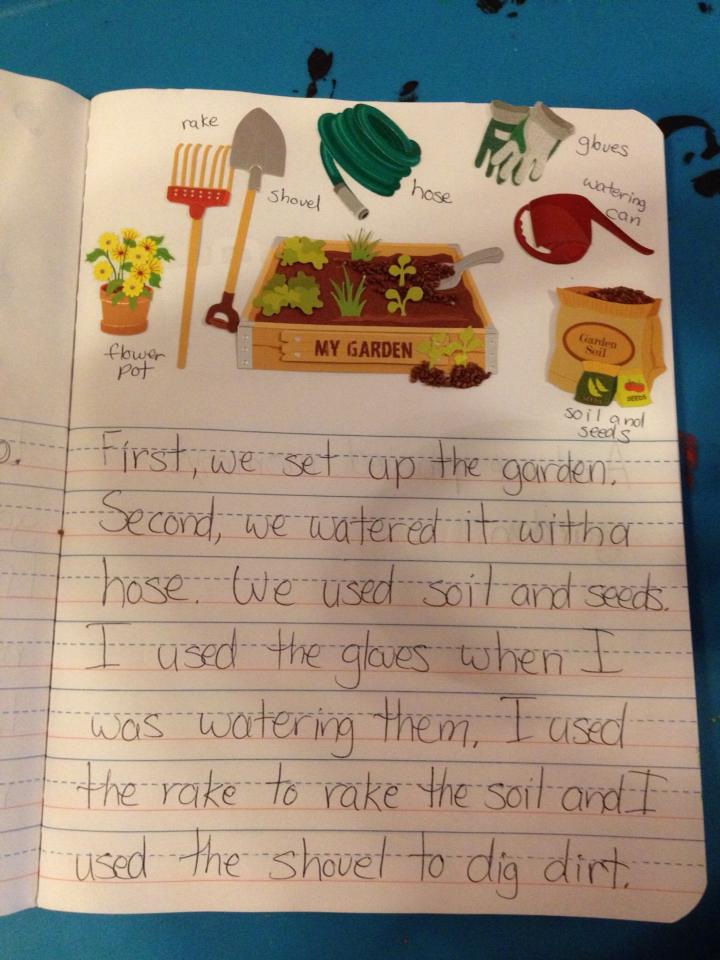 rake
shovel
hose
gloves
watering
can
flower
pot
MY GARDEN
Garden
Soil
SEEDS
soil and
seeds
First, we set up the garden.
Second, we watered it with a
hose. We used soil and seeds.
I used the gloves when I
was watering them. I used
the rake to rake the soil and I
used the shovel to dig dirt.